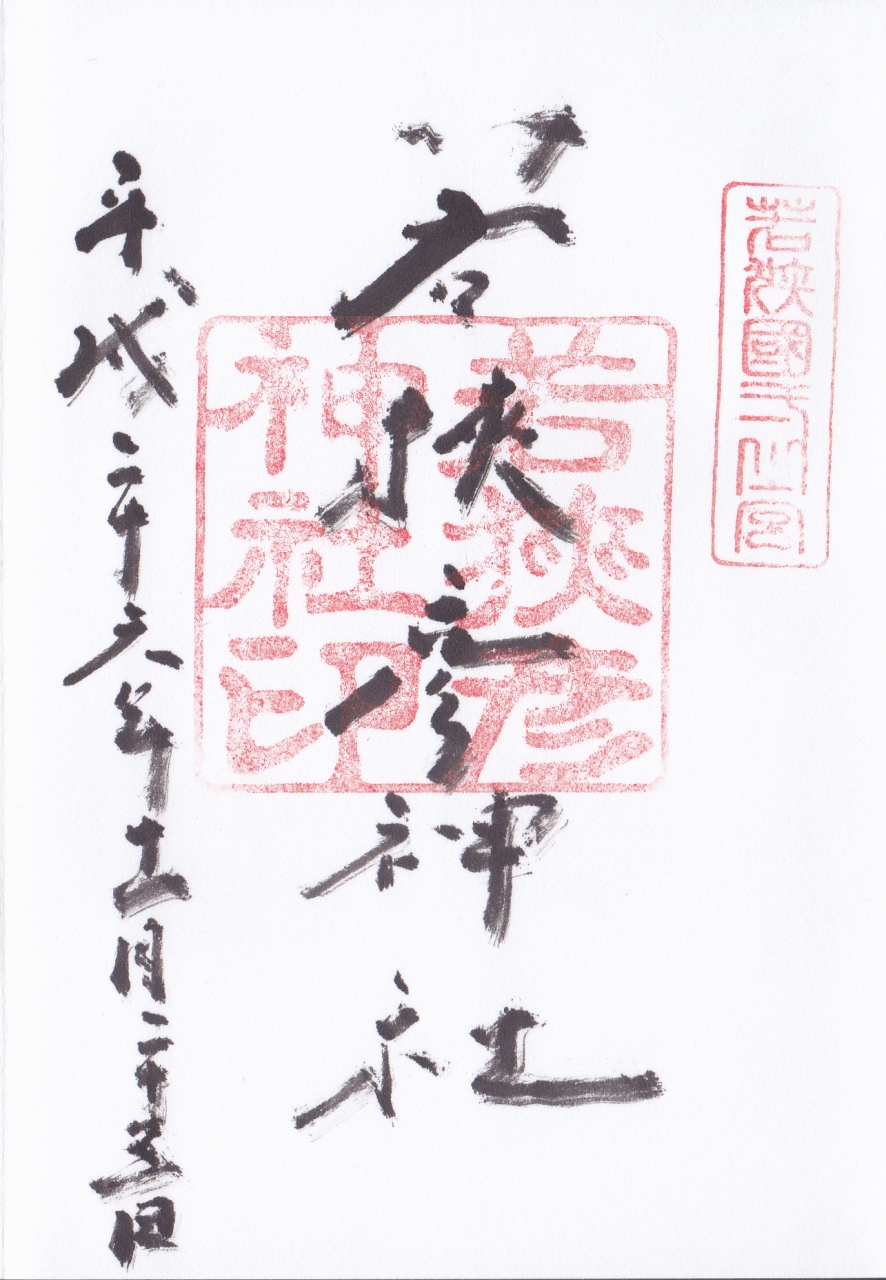 若狭國一之宮
若狭彦神社
若狭彦神社印
平成二十六年十一月二十三日